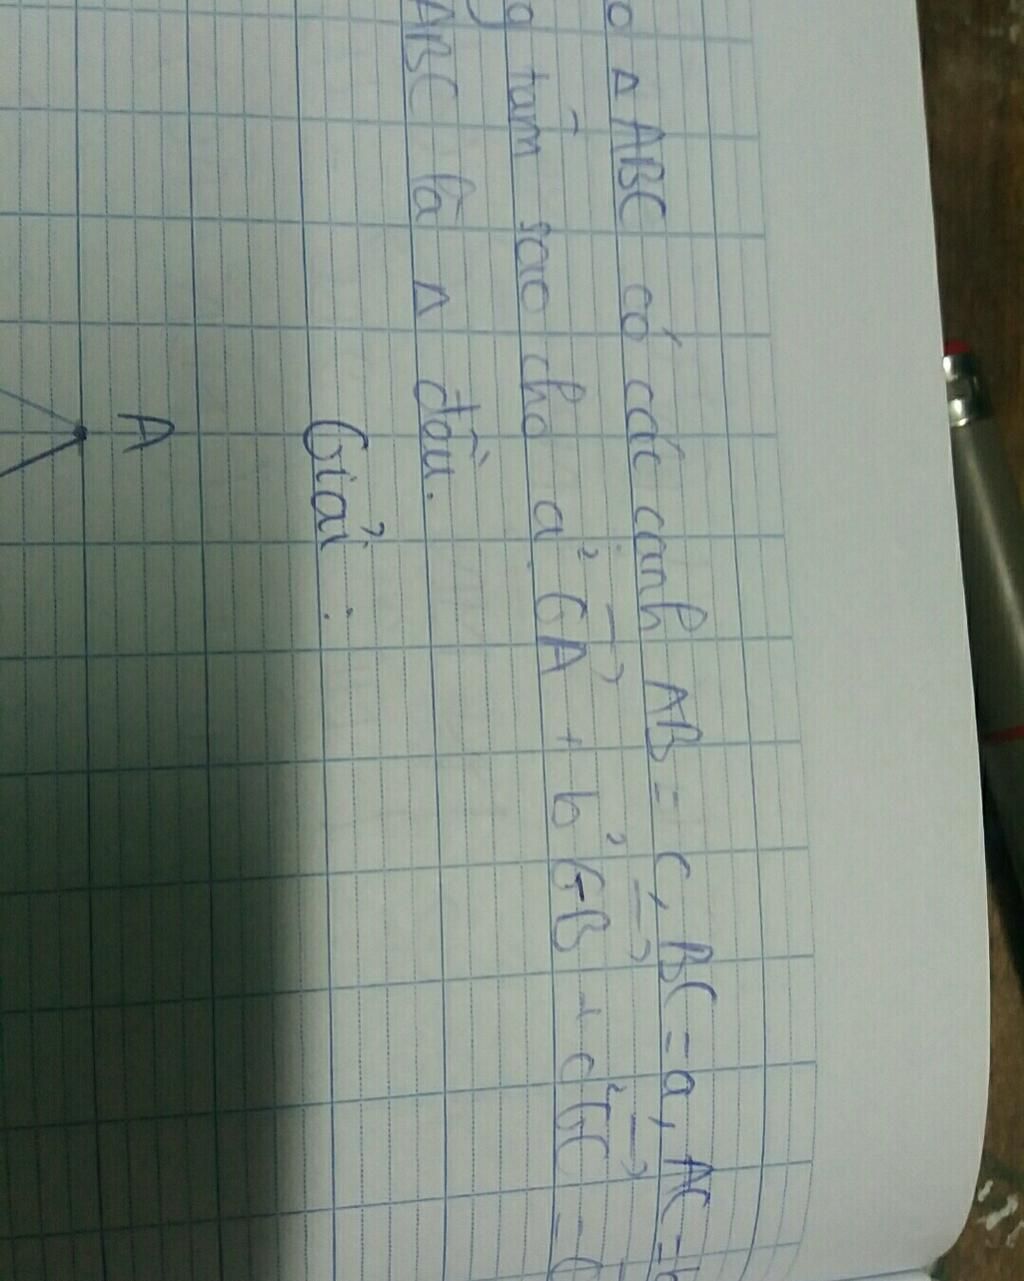 o Δ ABC có các cạnh AB = c, BC = a, AC = b
g tâm sao cho a² GA⃗ + b² GB⃗ + c² GC⃗ =
ABC là Δ đều.
Giải :
A